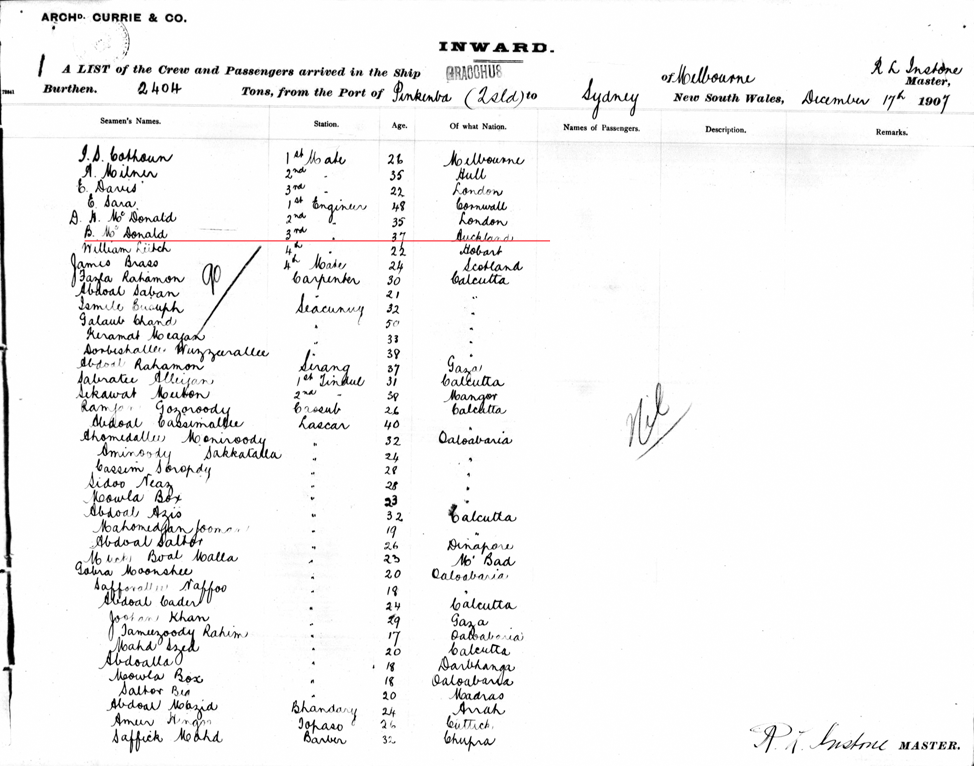 ARCHD. CURRIE & CO.
INWARD.
1 A LIST of the Crew and Passengers arrived in the Ship GRACCHUS of Melbourne R L Instone Master,
Burthen. 2404 Tons, from the Port of Pinkenba (Qsld) to Sydney New South Wales, December 17th 1907
Seamen's Names. Station. Age. Of what Nation. Names of Passengers. Description. Remarks.
Calhoun 1st Mate 26 Melbourne
A. Milner 2nd " 35 Hull
E. Davis 3rd 22 London
E. Sara 1st Engineer 48 Cornwall
D. H. McDonald 2nd " 35 London
B. McDonald 3rd " 37 Auckland
William 4th " 22 Hobart
James Brass 4th Mate 24 Scotland
Fazla Rahamon Carpenter 30 Calcutta
Abdoal Saban 21 "
Ismile Seacunny 32 "
Galaub Chand " 50 "
Keramat Meajan " 33 "
Wuzzurallee " 38 "
Abdoal Rahamon Sirang 37 Gaza
Sabratee Alleejan 1st Tindul 31 Calcutta
Sekawat 2nd " 38 Mangor
Gozoroody Cassub 26 Calcutta
Abdoal Cassimallee Lascar 40 "
Ahomedallee Moniroody " 32 Oaloabaria
Aminoody Sakkatalla " 24 "
Cassim Soropdy " 28 "
Sidoo Neaz " 28 "
Mowla Box " 23 "
Abdoal Azis " 32 Calcutta
Mahomedjan " 19 "
Abdoal Sattor " 26 Dinapore
Boal Malla " 23 Mo' Bad
Gobra Moonshee " 20 Oaloabaria
Naffoo " 18 "
Abdoal Cader " 24 Calcutta
Khan " 29 Gaza
Tamezoody Rahim " 17 Oaloabaria
Mahd " 20 Calcutta
Abdoalla " 18 Darbhanga
Mowla Box " 18 Oaloabaria
Sattor " 20 Madras
Abdoal Mazid Bhandary 24 Arrah
Ameer Topaso 26
Saffick Mahd Barber 32 Chupra
90
Nil
R. L. Instone MASTER.